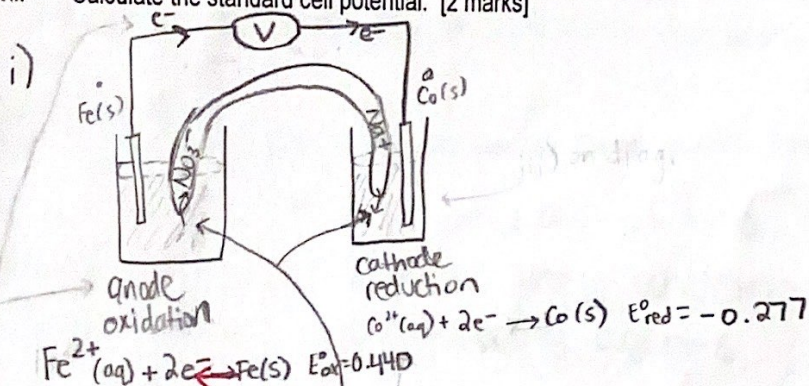 Calculate the standard cell potential. [2 marks]
e⁻ V e⁻
i)
Fe(s) Co(s)
NO₃⁻ Na⁺
anode
oxidation
cathode
reduction
Co²⁺(aq) + 2e⁻ → Co(s) E°red = -0.277
Fe²⁺(aq) + 2e⁻ ↔ Fe(s) E°ox = 0.440